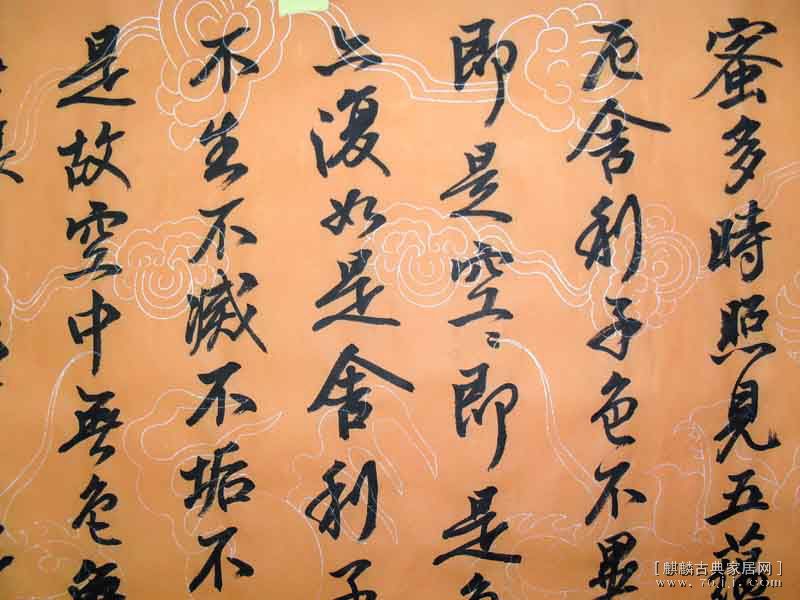 蜜多時照見五蘊
厄舍利子色不異
即是空〻即是色
亦復如是舍利子
不生不滅不垢不
是故空中無色無
[麒麟古典家居网]
www.70jj.com